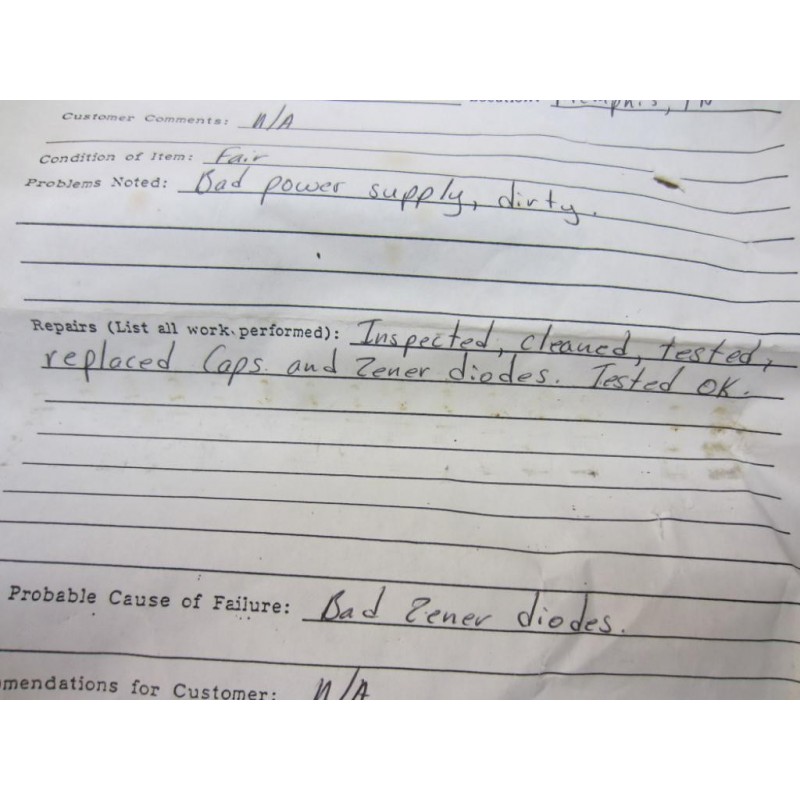 Location: Memphis, TN
Customer Comments: N/A
Condition of Item: Fair
Problems Noted: Bad power supply, dirty.
Repairs (List all work performed): Inspected, cleaned, tested,
replaced Caps. and Zener diodes. Tested OK.
Probable Cause of Failure: Bad Zener diodes.
mendations for Customer: N/A